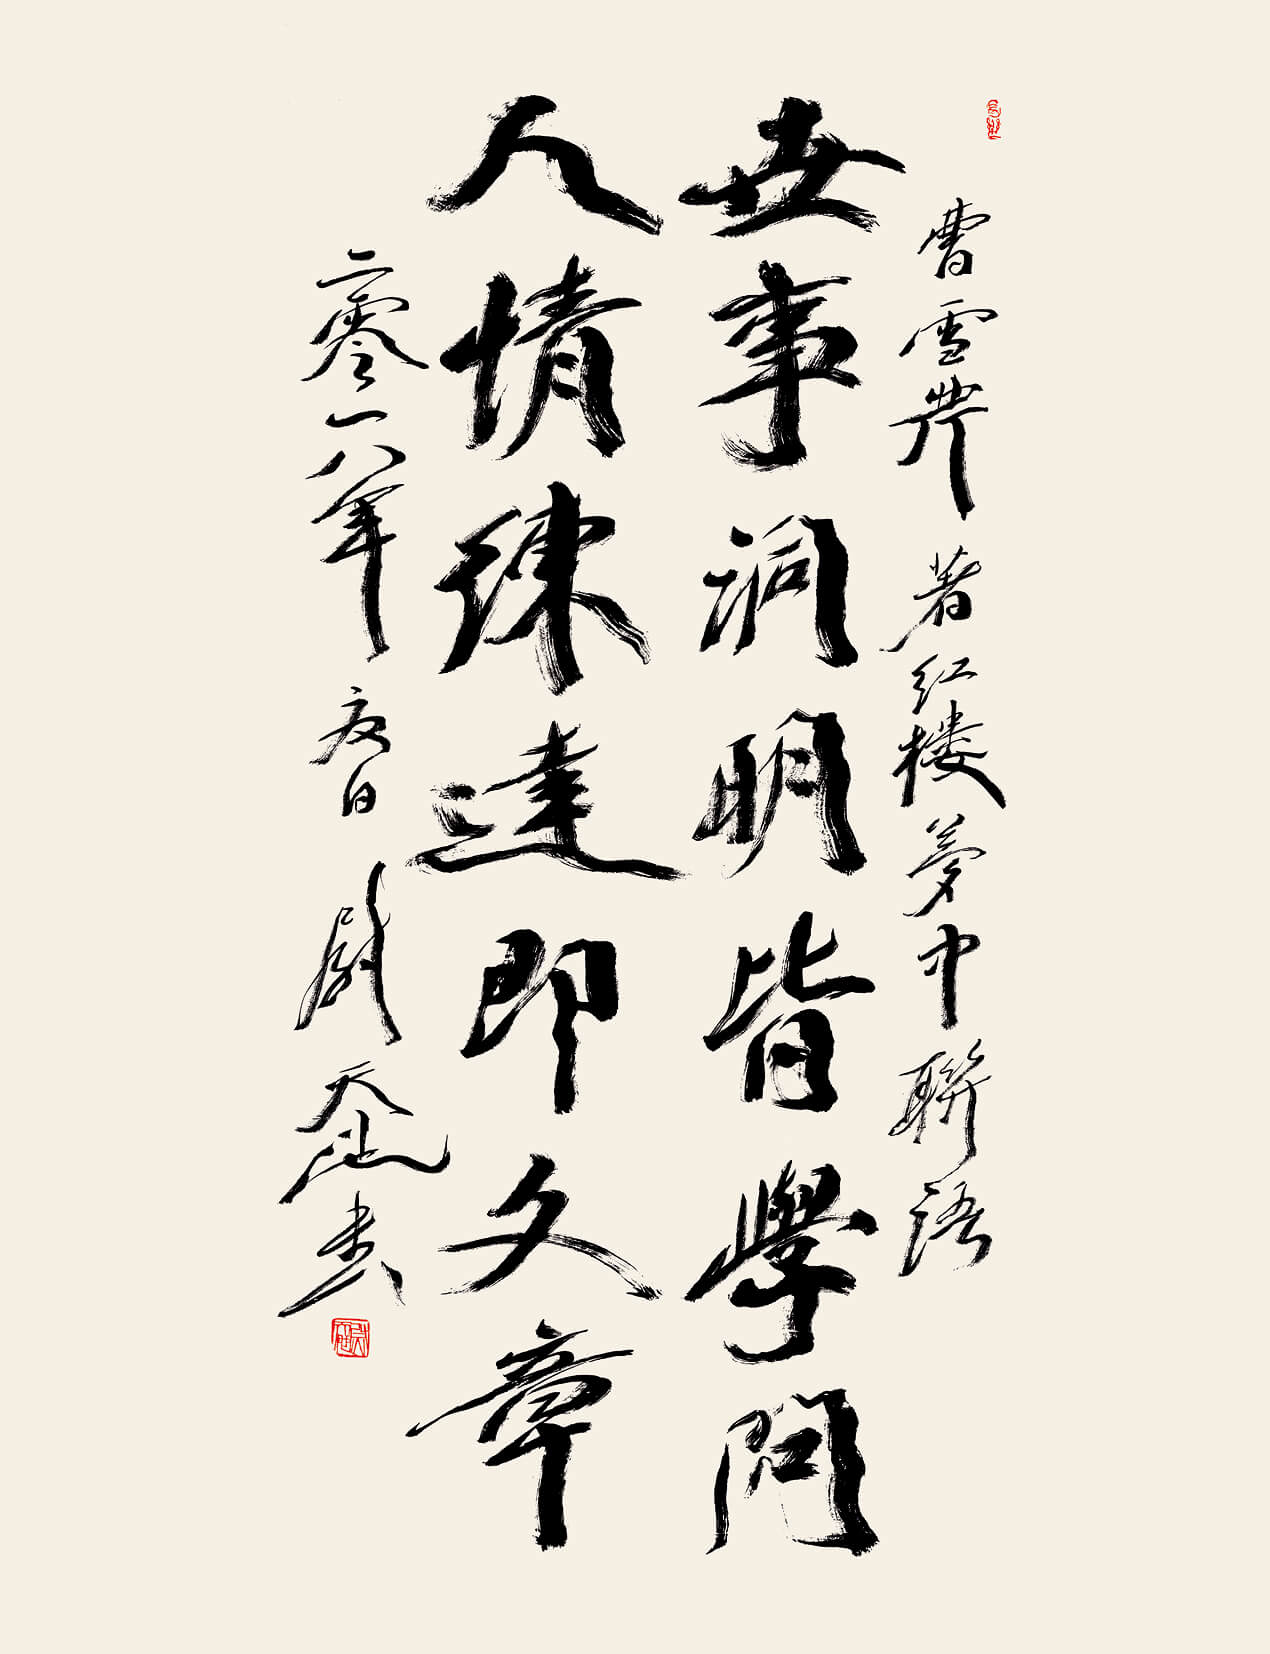 曹雪芹著红楼夢中聯語
世事洞明皆學問
人情練達即文章
二零一八年夏日尉天池書